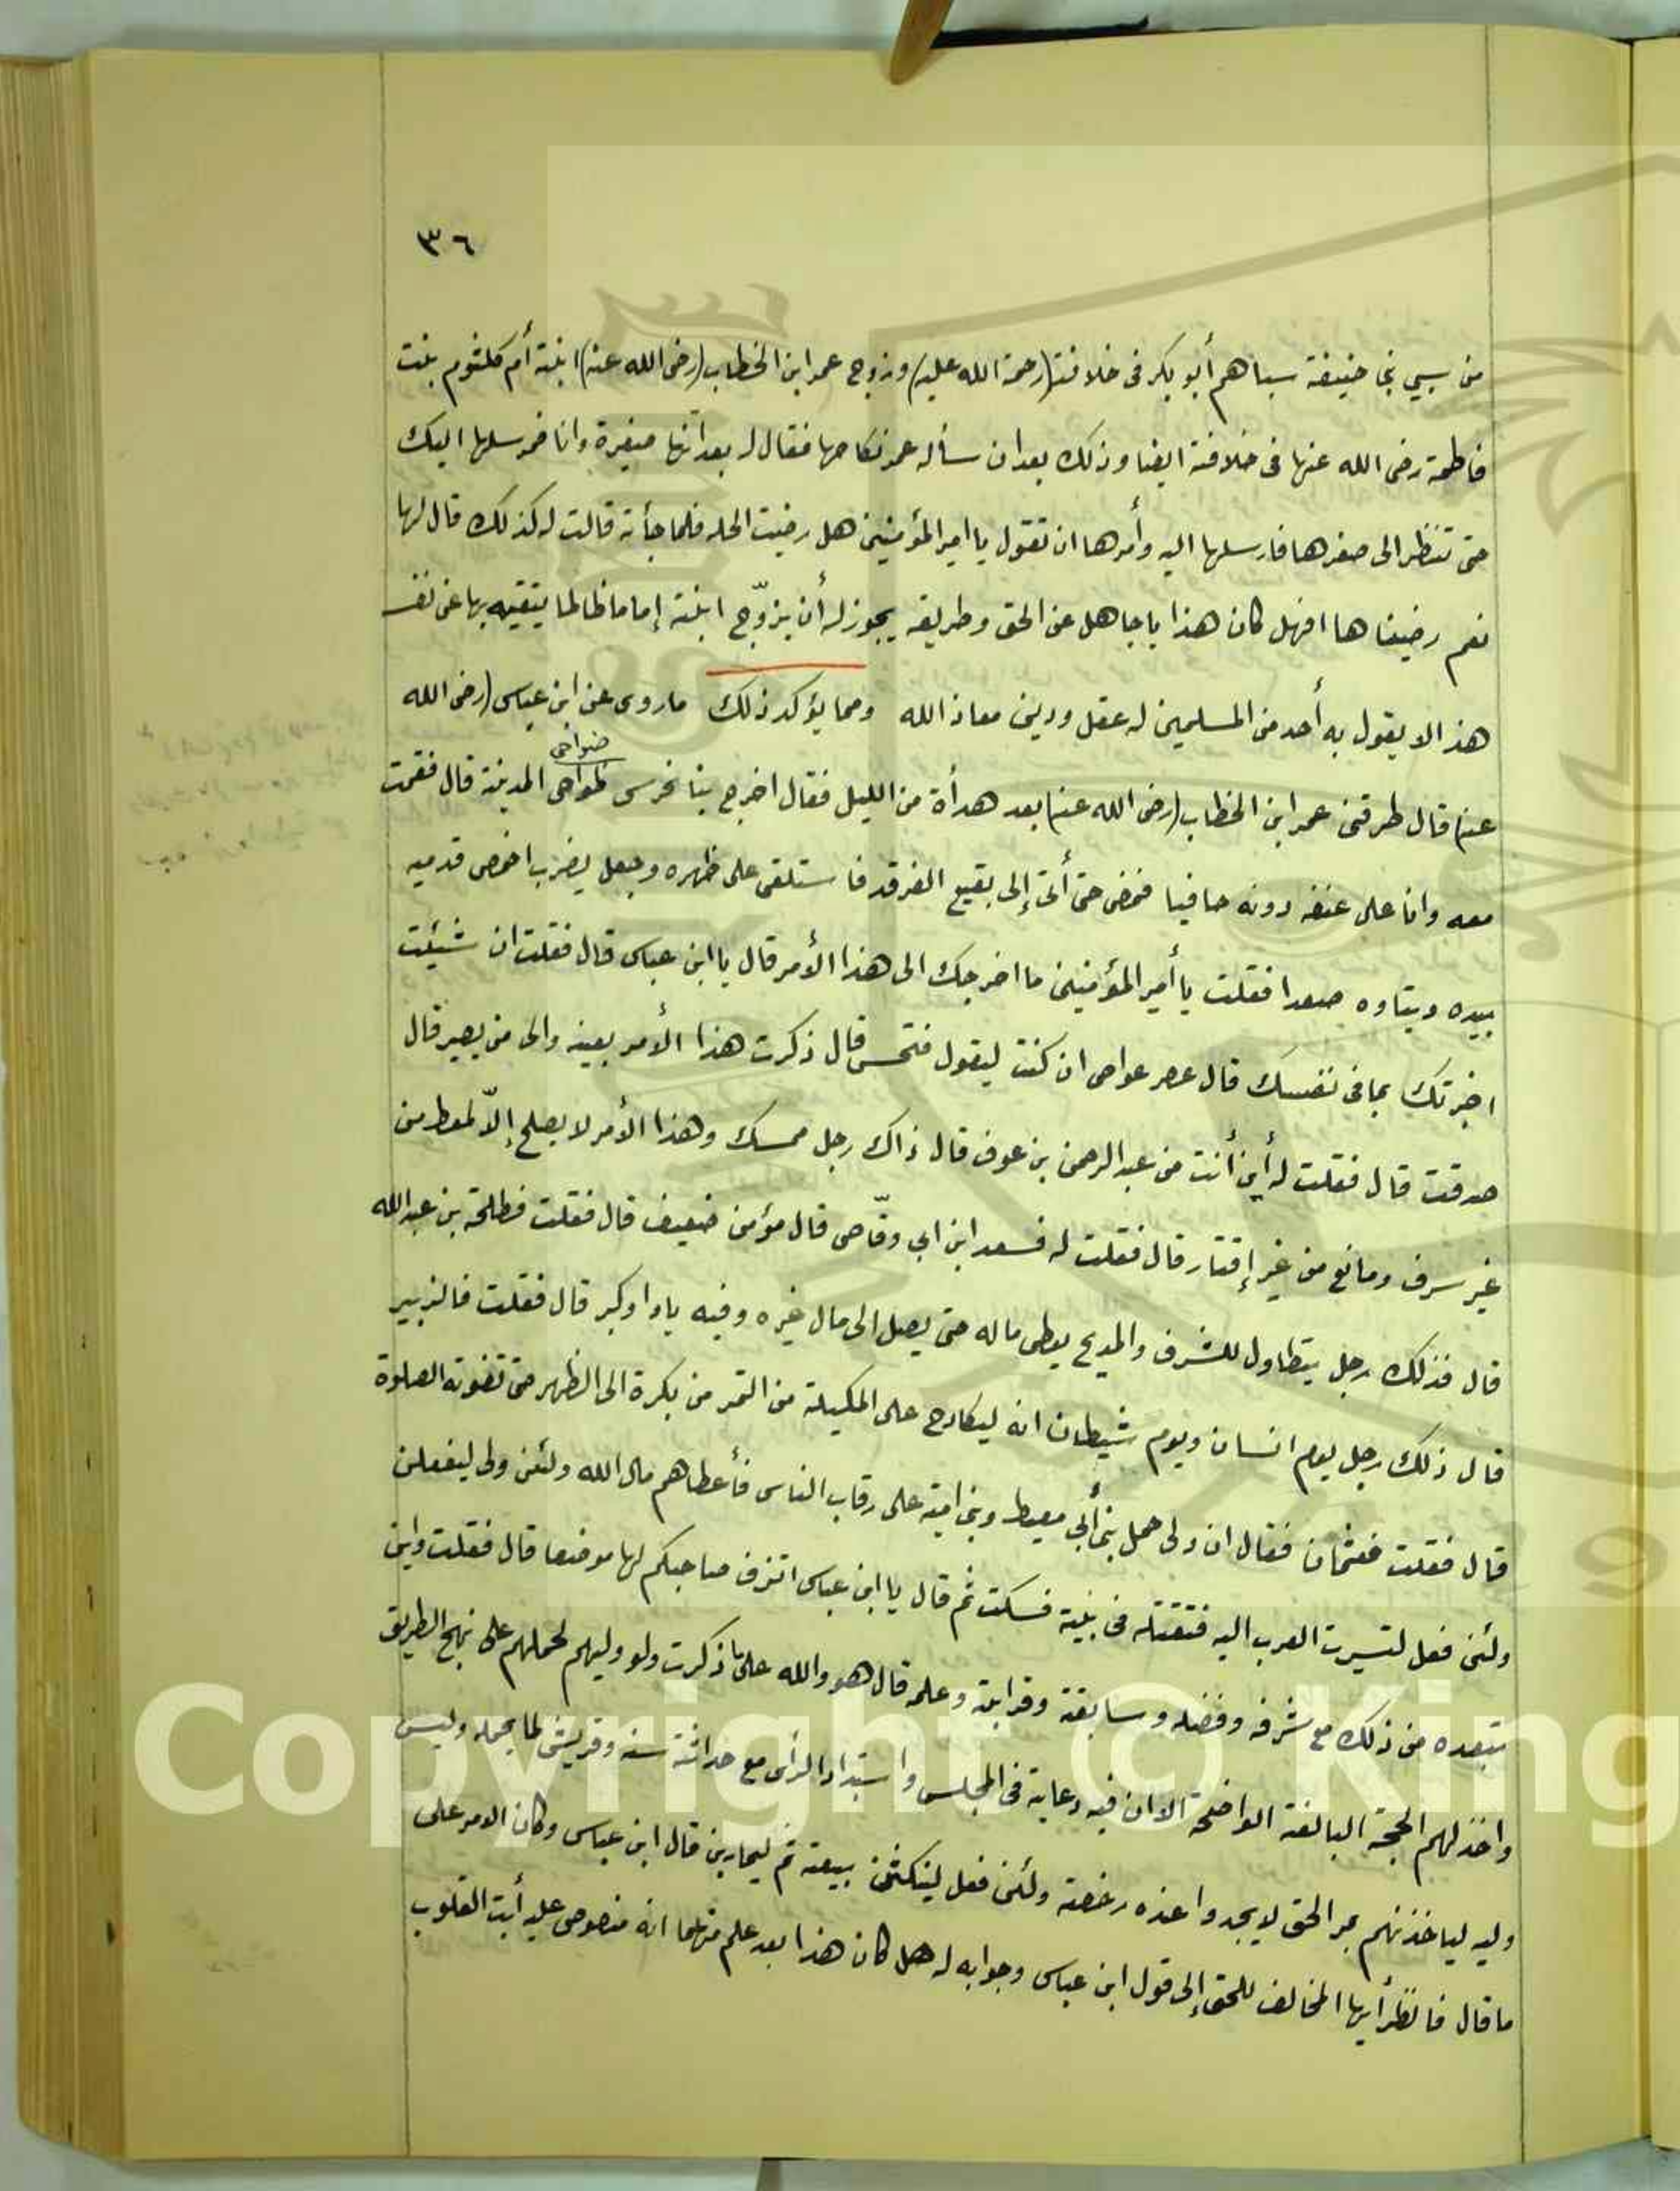 ٣٦
من سبي بني حنيفة سباهم أبو بكر في خلافته (رحمة الله عليه) وزوج عمر ابن الخطاب (رضى الله عنه) ابنته أم كلثوم بنت
فاطمة رضى الله عنها في خلافته ايضا وذلك بعد ان سأله عمر نكاحها فقال له بعد انها صغيرة وانا مرسلها اليك
حتى تنظر الى صغرها فارسلها اليه وأمرها ان تقول يا امير المؤمنين هل رضيت الحله فلما جأته قالت له كذلك قال لها
نعم رضيناها افهل كان هذا يا جاهل عن الحق وطريقه يجوز له أن يزوّج ابنته إماما ظالما يتقيه بها عن نفسه
هذا لا يقول به أحد من المسلمين له عقل ودين معاذ الله ومما يؤكد ذلك ماروى عن ابن عباس (رضى الله
ضواحى
عنه) قال طرقني عمر ابن الخطاب (رضى الله عنه) بعد هدأة من الليل فقال اخرج بنا نحرس ظواحى المدينة قال فقمت
معه وانا على عنقه دونه حافيا فمضى حتى أتى إلى بقيع الغرقد فاستلقى على ظهره وجعل يضرب اخمص قدميه
بيده ويتاوه صعدا فقلت يا أمير المؤمنين ما اخرجك الى هذا الأمر قال يا ابن عباس قال فقلت ان شيئت
اخبرتك بما فى نفسك قال غص غواص ان كنت ليقول فتحسن قال ذكرت هذا الأمر بعينه والى من يصير قال
صدقت قال فقلت له أين أنت من عبد الرحمن بن عوف قال ذاك رجل ممسك وهذا الأمر لا يصلح إلّا لمعط من
غير سرف ومانع من غير إقتار قال فقلت له فسعد ابن ابي وقّاص قال مؤمن ضعيف قال فقلت فطلحة بن عبد الله
قال فذلك رجل يتطاول للشرف والمديح يعطى ماله حتى يصل الى مال غيره وفيه باوا وكبر قال فقلت فالزبير
قال ذلك رجل يوم انسان ويوم شيطان انه ليكادح على المكيلة من التمر من بكرة الى الظهر حتى تفوته الصلوة
قال فقلت فعثمان فقال ان ولى حمل بني أبي معيط وبني امية على رقاب الناس فأعطاهم مال الله ولئن ولى ليفعلن
ولئن فعل لتسيرت العرب اليه فتقتله في بيته فسكت ثم قال يا ابن عباس اترى صاحبكم لها موضعا قال فقلت واين
يتبعده من ذلك مع شرفه وفضله وسابقته وقرابته وعلمه قال هو والله على ما ذكرت ولو وليهم لحملهم على نهج الطريق
واخذ لهم الحجة البالغة الواضحة الا ان فيه دعابة فى المجلس واستبداد الرأى مع حداثة سنه وقريش لما يحمله وليس
وليه لياخذنهم بمر الحق لا يجدوا عنده رخصة ولئن فعل لينكثن بيعته ثم ليحاربن قال ابن عباس وكان الامر على
ما قال فانظر أيها المخالف للحق إلى قول ابن عباس وجوابه له هل كان هذا بعد علم منهما انه منصوص عليه أبت القلوب
Copyright © King